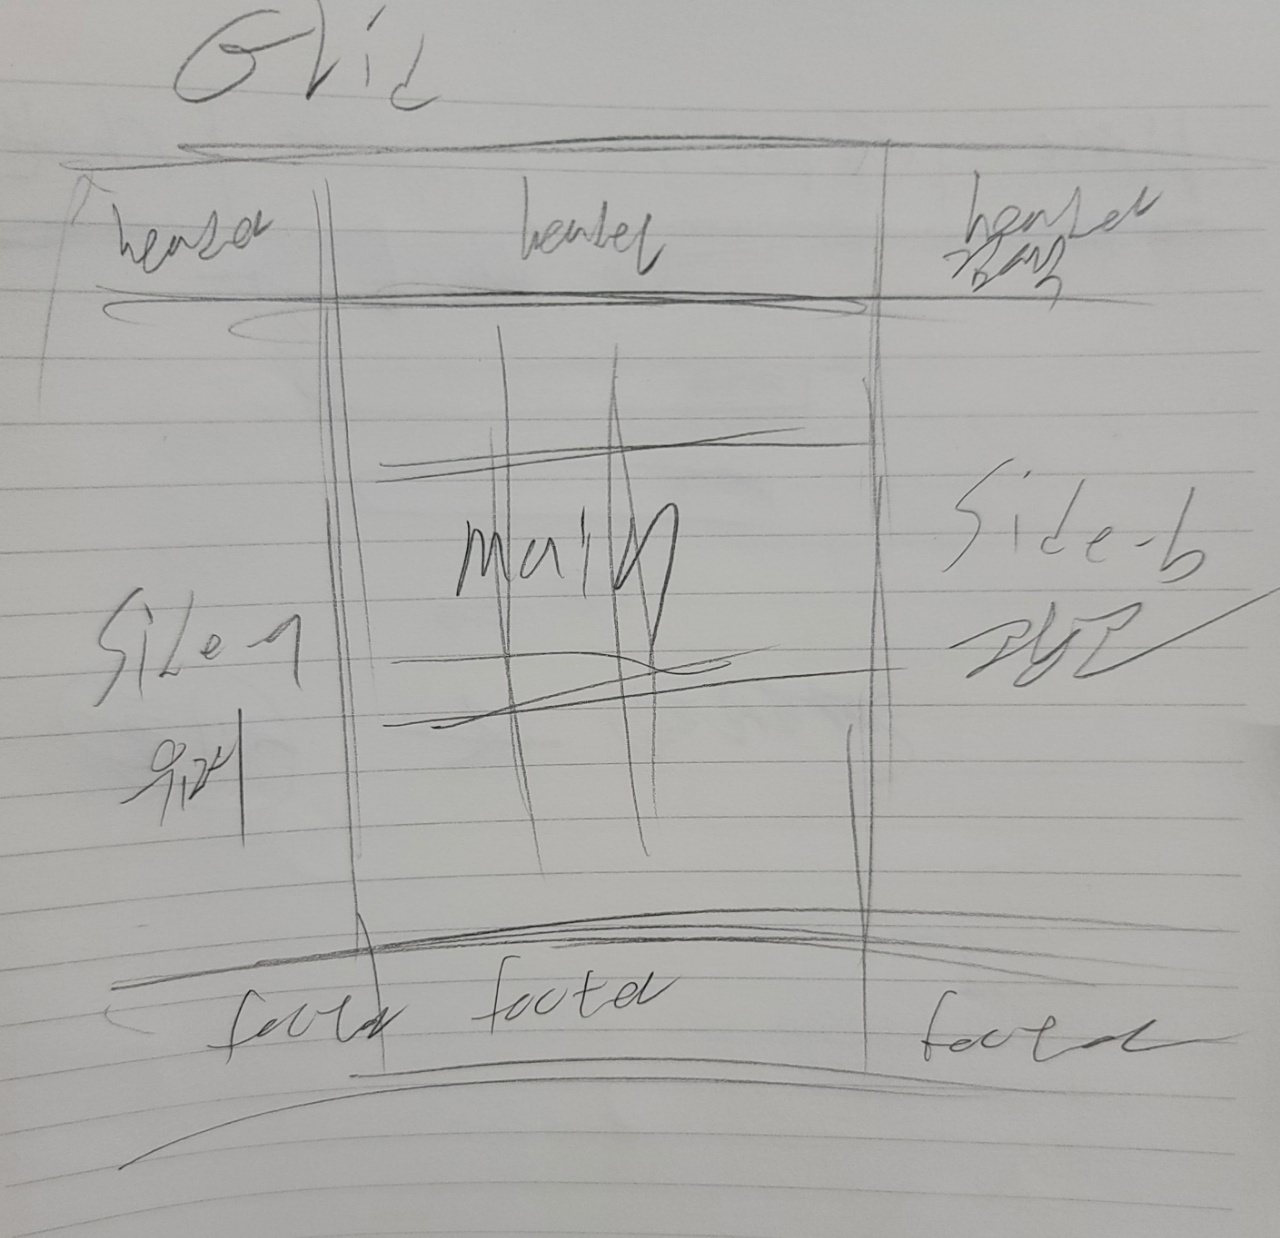 Grid
header header header
검색
main
side-b
side-a
광고
footer footer footer